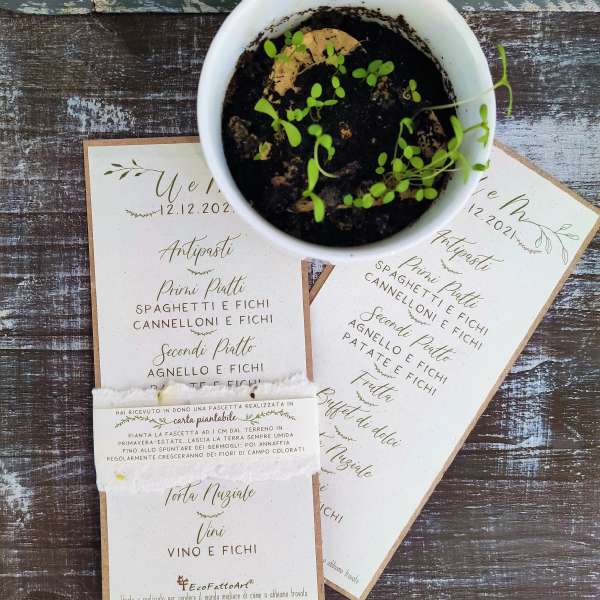 U e M
12.12.2021
Antipasti
Primi Piatti
SPAGHETTI E FICHI
CANNELLONI E FICHI
Secondi Piatto
AGNELLO E FICHI
PATATE E FICHI
HAI RICEVUTO IN DONO UNA FASCETTA REALIZZATA IN
carta piantabile
PIANTA LA FASCETTA AD 1 CM DAL TERRENO IN
PRIMAVERA-ESTATE. LASCIA LA TERRA SEMPRE UMIDA
FINO ALLO SPUNTARE DEI GERMOGLI: POI ANNAFFIA
REGOLARMENTE CRESCERANNO DEI FIORI DI CAMPO COLORATI.
Torta Nuziale
Vini
VINO E FICHI
EcoFattoArt®
e M
12.2021
Antipasti
Primi Piatti
SPAGHETTI E FICHI
CANNELLONI E FICHI
Secondi Piatto
AGNELLO E FICHI
PATATE E FICHI
Frutta
Buffet di dolci
Nuziale
FICHI
abbiamo trovato